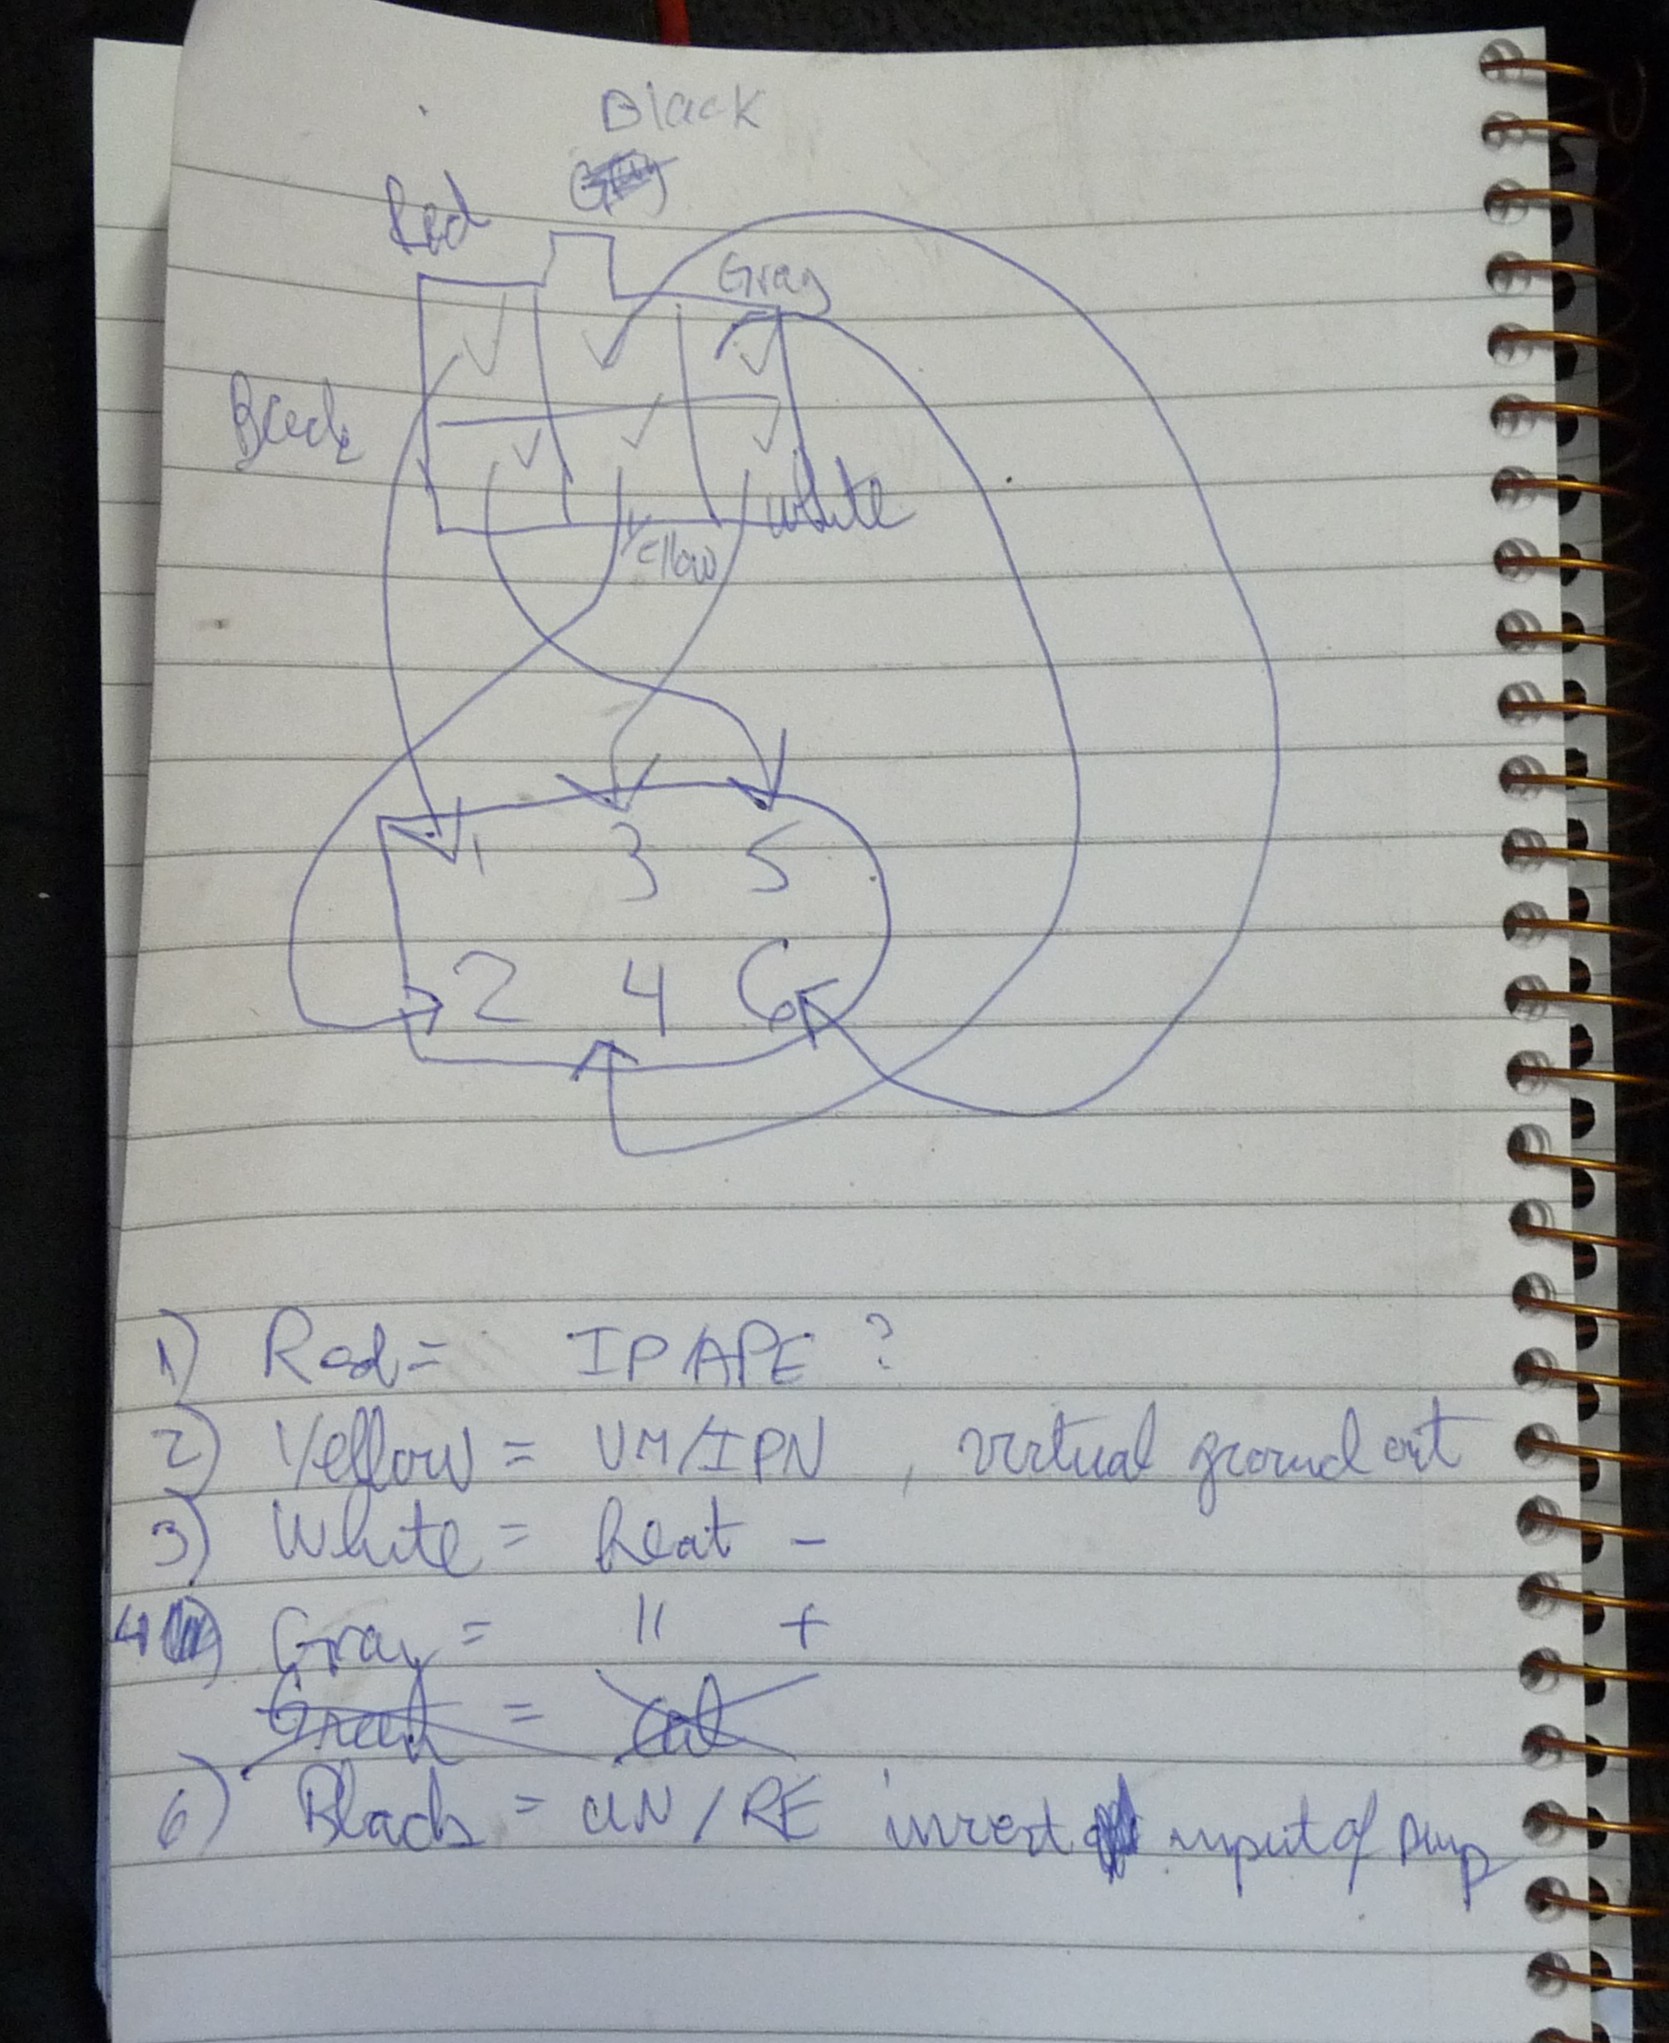 Black
Red
Gray
Black
White
Yellow
1 3 5
2 4 6
1) Red = IP APE ?
2) Yellow = VM/IPN , virtual ground out
3) White = heat -
4) Gray = " +
= Cal
6) Black = UN / RE invert input of pump